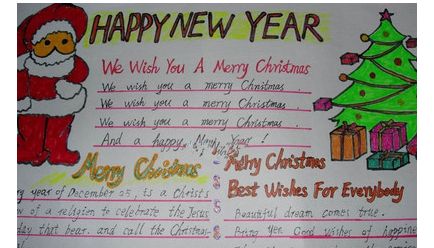 HAPPY NEW YEAR
We Wish You A Merry Christmas
We wish you a merry Christmas .
We wish you a merry Christmas .
We wish you a merry Christmas .
And a happy New Year !
Merry Christmas
Merry Christmas
Best Wishes For Everybody
ry year of December 25, is a Christ
of a religion to celebrate the Jesus
day that bear. and call the Christmas
Beautiful dream comes true.
Bring you Good wishes of happine